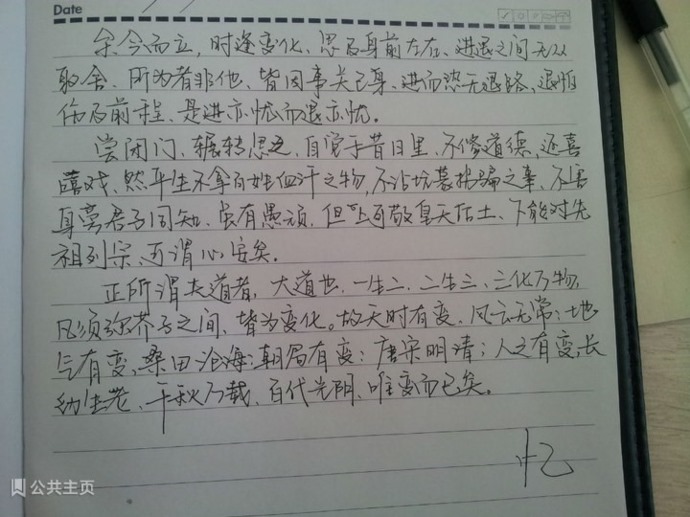 Date
余今而立，时逢变化、思及身前左右、进退之间无以
取舍、所为者非他、皆因事关己身、进而恐无退路，退怕
伤及前程、是进亦忧而退亦忧。
尝闭门、辗转思之，自觉于昔日里、不修道德、还喜
嬉戏、然平生不拿百姓血汗之物，不沾坑蒙拐骗之事、不害
君子同知、虽有愚顽，但上可敬皇天后土、下能对先
祖列宗、可谓心安矣。
正所谓夫道者，大道也、一生二、二生三、三化万物，
凡须弥芥子之间、皆为变化。故天时有变、风云无常；地
气有变，桑田沧海；朝局有变：唐宋明清；人之有变，长
幼生老、千秋万载、百代光阴、唯变而已矣。
忆
公共主页